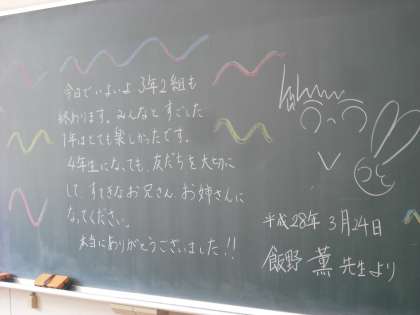 今日でいよいよ3年2組も
終わります。みんなとすごした
1年はとても楽しかったです。
4年生になっても、友だちを大切に
して、すてきなお兄さん お姉さんに
なってください。
本当にありがとうございました!!
平成28年 3月24日
飯野 薫 先生より